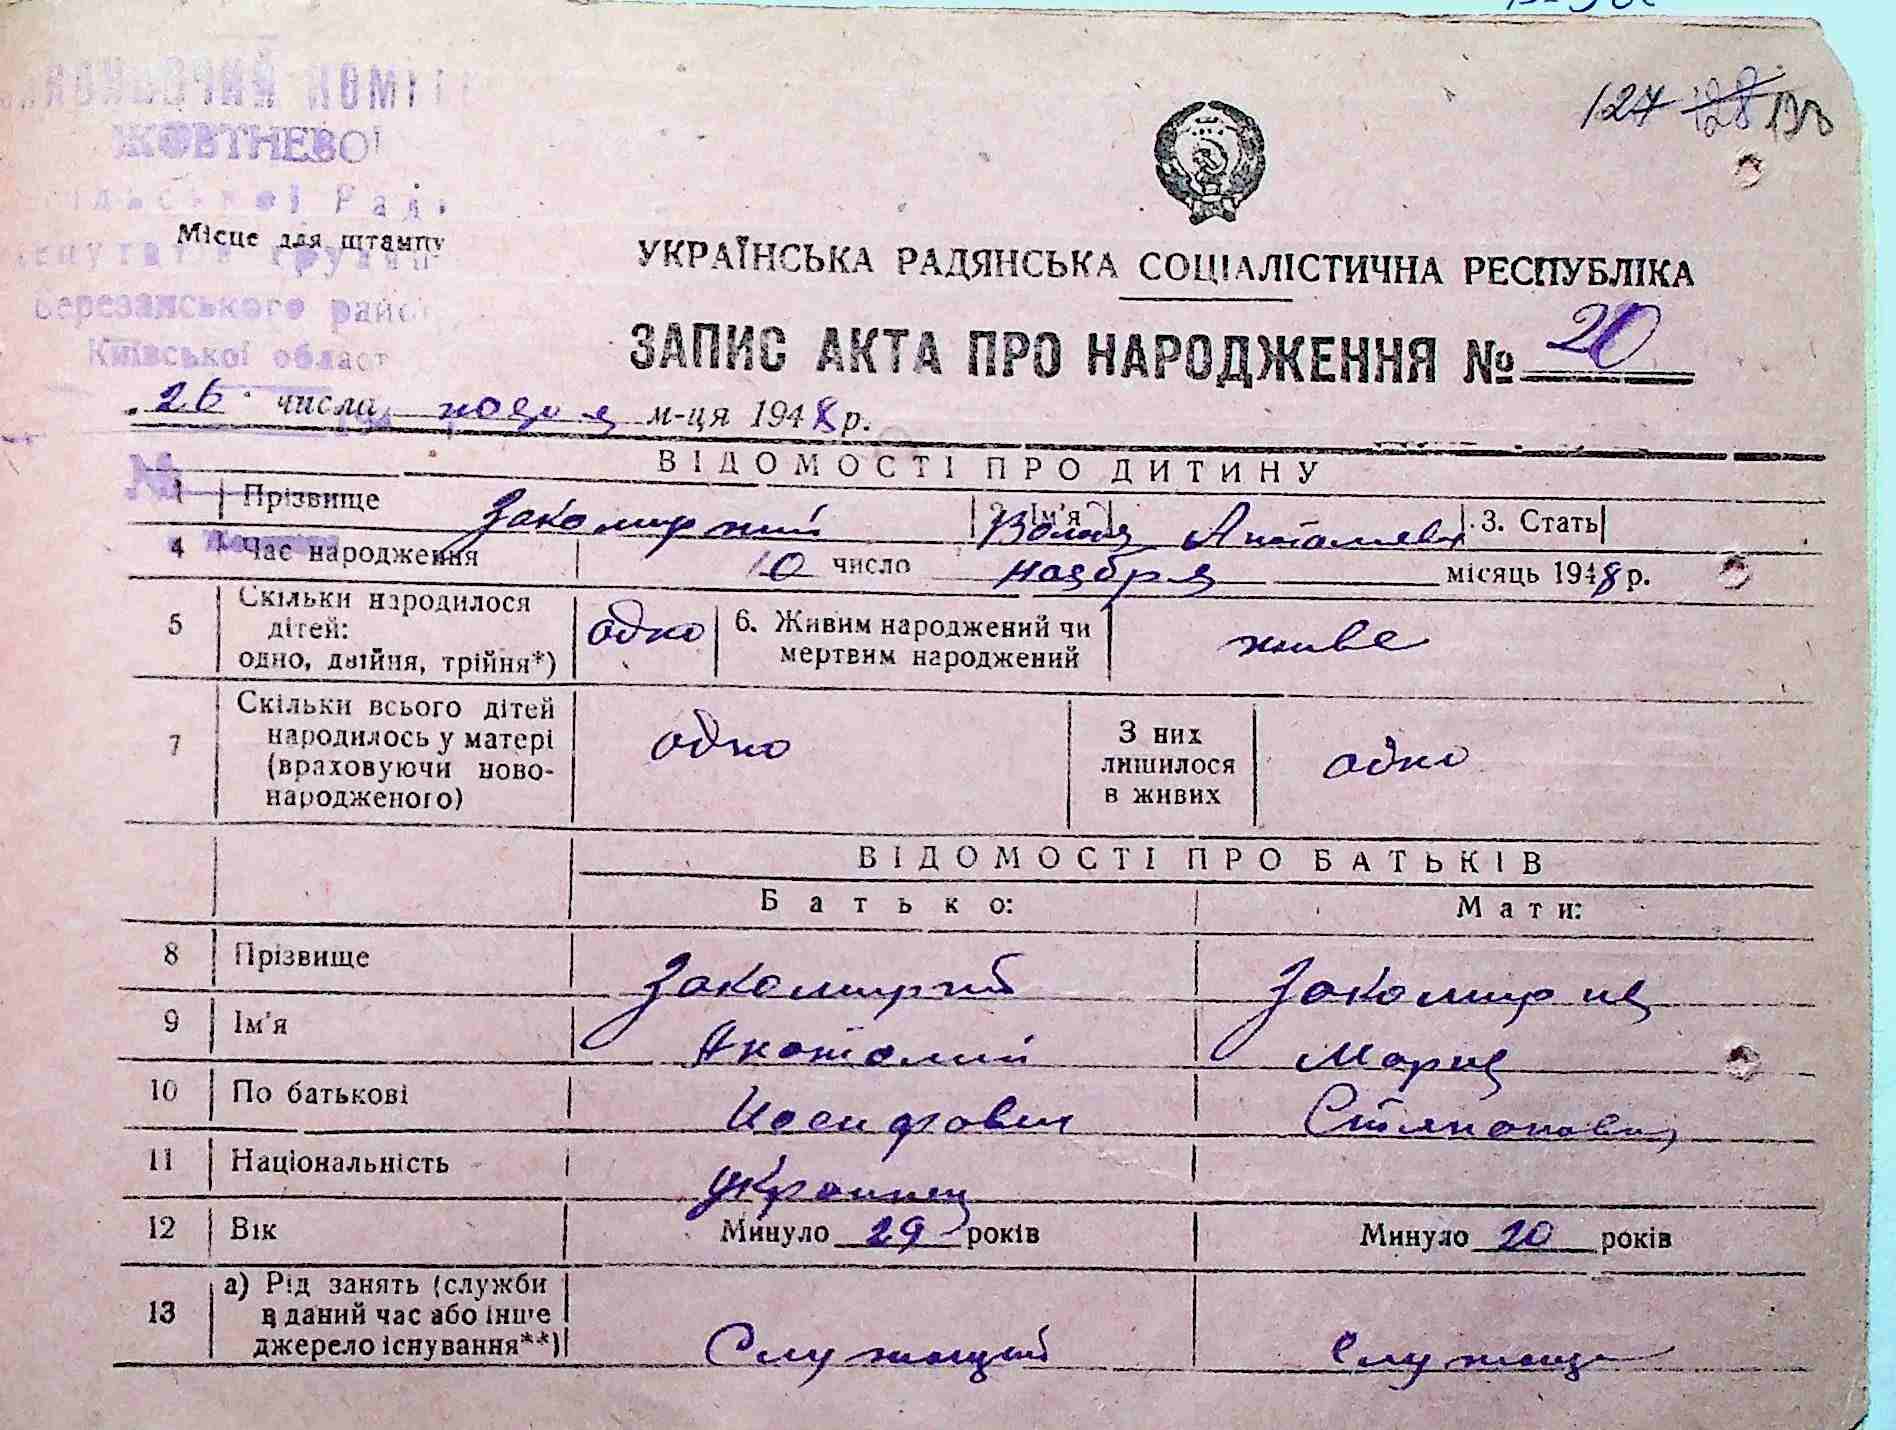 127 128
ЖОВТНЕВОЇ
Місце для штампу
Березанського
Київської област
УКРАЇНСЬКА РАДЯНСЬКА СОЦІАЛІСТИЧНА РЕСПУБЛІКА
ЗАПИС АКТА ПРО НАРОДЖЕННЯ № 20
26 числа м-ця 1948 р.
ВІДОМОСТІ ПРО ДИТИНУ
1 Прізвище Закомирний 2. Ім'я Анатолиев 3. Стать
4 Час народження 10 число ноября місяць 1948 р.
5 Скільки народилося дітей: одно, двійня, трійня*) одно 6. Живим народжений чи мертвим народжений живе
7 Скільки всього дітей народилось у матері (враховуючи ново-народженого) одно З них лишилося в живих одно
ВІДОМОСТІ ПРО БАТЬКІВ
Батько: Мати:
8 Прізвище Закомирний Закомирня
9 Ім'я Анатолий Мария
10 По батькові Иосифович Степановна
11 Національність украинец
12 Вік Минуло 29 років Минуло 20 років
13 а) Рід занять (служби в даний час або інше джерело існування**) Служащий Служащ